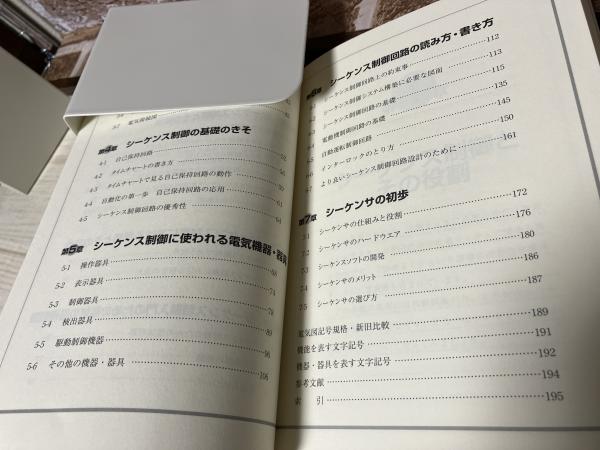 第4章 シーケンス制御の基礎のきそ
4-1 自己保持回路
4-2 タイムチャートの書き方
4-3 タイムチャートで見る自己保持回路の動作
4-4 自動化の第一歩 自己保持回路の応用
4-5 シーケンス制御回路の優秀性
第5章 シーケンス制御に使われる電気機器・器具
5-1 操作器具 68
5-2 表示器具 74
5-3 制御器具 78
5-4 検出器具 89
5-5 駆動制御機器 98
5-6 その他の機器・器具 106
第6章 シーケンス制御回路の読み方・書き方
6-1 シーケンス制御回路上の約束事 112
6-2 シーケンス制御システム構築に必要な図面 113
6-3 シーケンス制御回路の基礎 115
6-4 電動機制御回路の基礎 135
6-5 自動運転制御回路 145
6-6 インターロックのとり方 150
6-7 より良いシーケンス制御回路設計のために 161
第7章 シーケンサの初歩
7-1 シーケンサの仕組みと役割 172
7-2 シーケンサのハードウエア 176
7-3 シーケンスソフトの開発 180
7-4 シーケンサのメリット 186
7-5 シーケンサの選び方 187
電気図記号規格・新旧比較 189
機能を表す文字記号 191
機器・器具を表す文字記号 192
参考文献 194
索 引 195